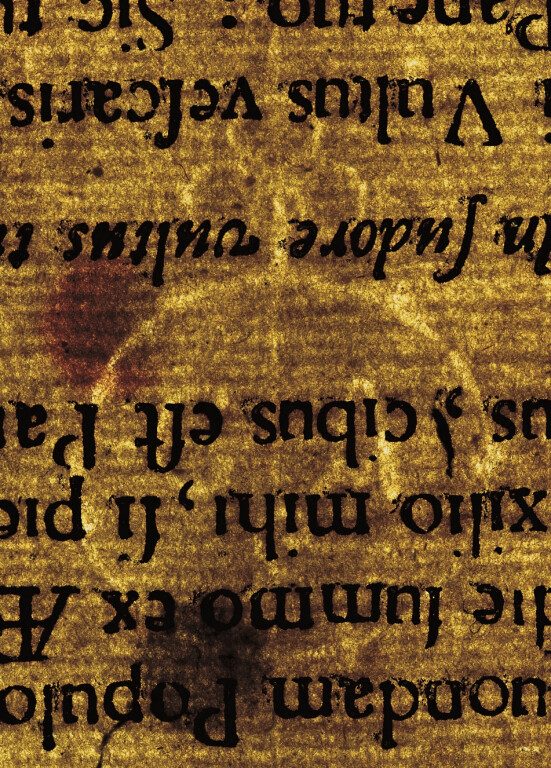 uondam Populo
die ſummo ex Æ
xilio mihi, ſi pie
us, cibus eſt Pa
In ſudore vultus t
Vultus veſcaris
Pane tuo: Sic t